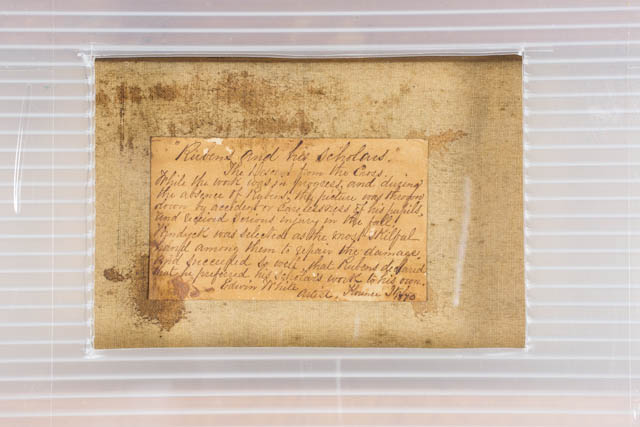 "Rubens and his scholars."
The Descent from the Cross.
While the work was in progress, and during
the absence of Rubens, the picture was thrown
down by accident or carelessness of his pupils,
and received serious injury in the fall.
Vandyck was selected as the most skilful
hand among them to repair the damage,
and succeeded so well, that Rubens declared
that he preferred his scholars work to his own.
Edwin White
Artist. Florence 1870